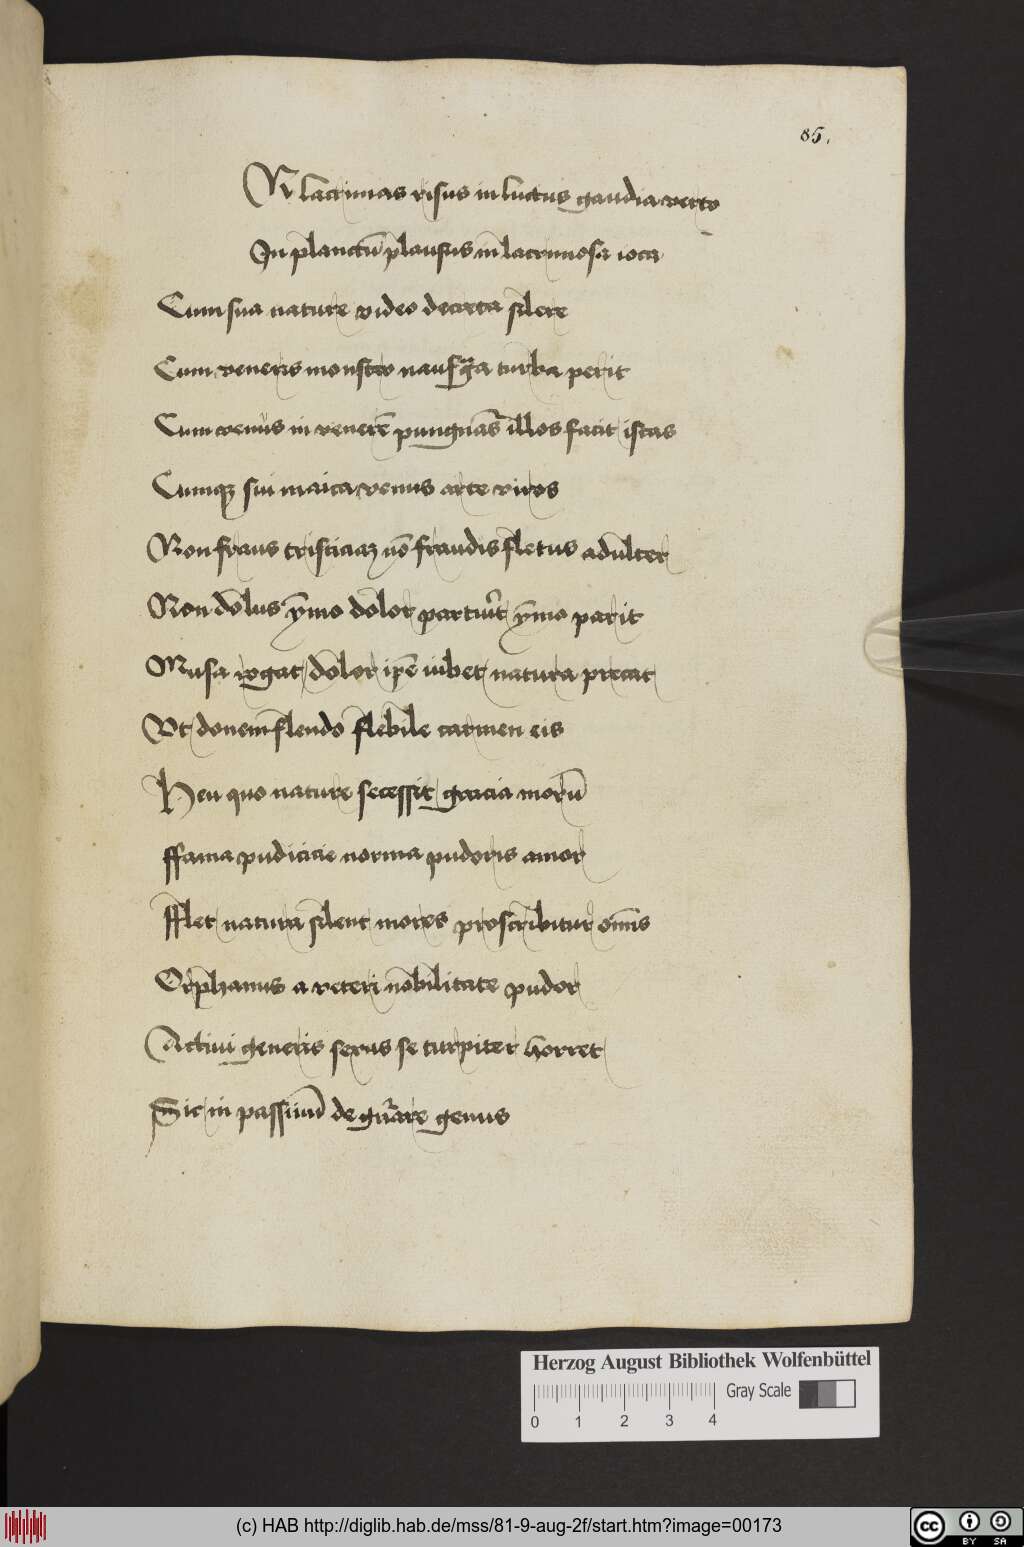 85.
N lacrimas risus in luctus gaudia verto
In planctū plausus in lacrimosa ioca
Cum sua nature video decreta silere
Cum veneris monstro naufͣga turba perit
Cum venus in venerē pungnas illos facit istas
Cumqꝫ sui maica venus arte viros
Non fraus tristiciaꝫ nō fraudis fletus adulter
Non dolus ymo dolor parturͥt ymo parit
Musa rogat dolor ipē iubet natura precat
Vt donem flendo flebile carmen eis
Heu quo nature secessit gracia morū
ffama pudicicie norma pudoris amor
fflet natura silent mores proscribitur om̄is
Orphanus a veteri nobilitate pudor
Actiui generis sexus se turpiter horret
Sic in passiuū de gn̄are genus
Herzog August Bibliothek Wolfenbüttel
Gray Scale
0 1 2 3 4
(c) HAB http://diglib.hab.de/mss/81-9-aug-2f/start.htm?image=00173
cc BY SA